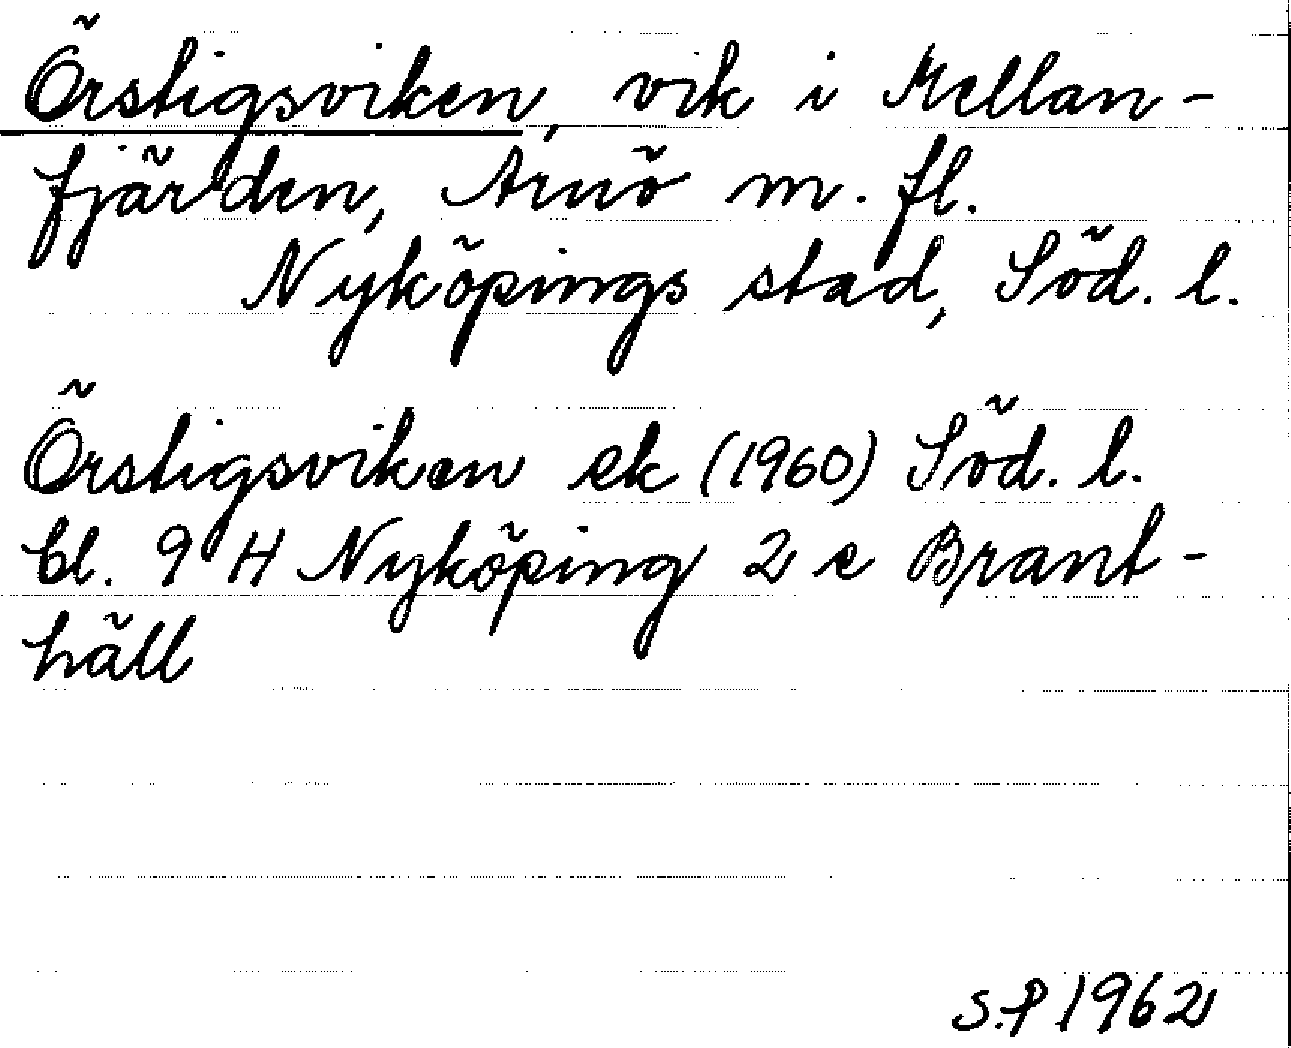 Örstigsviken, vik i Mellan-
fjärden, Arnö m. fl.
Nyköpings stad, Söd. l.
Örstigsviken ek (1960) Söd. l.
bl. 9 H Nyköping 2 e Brant-
häll
S.P 1962